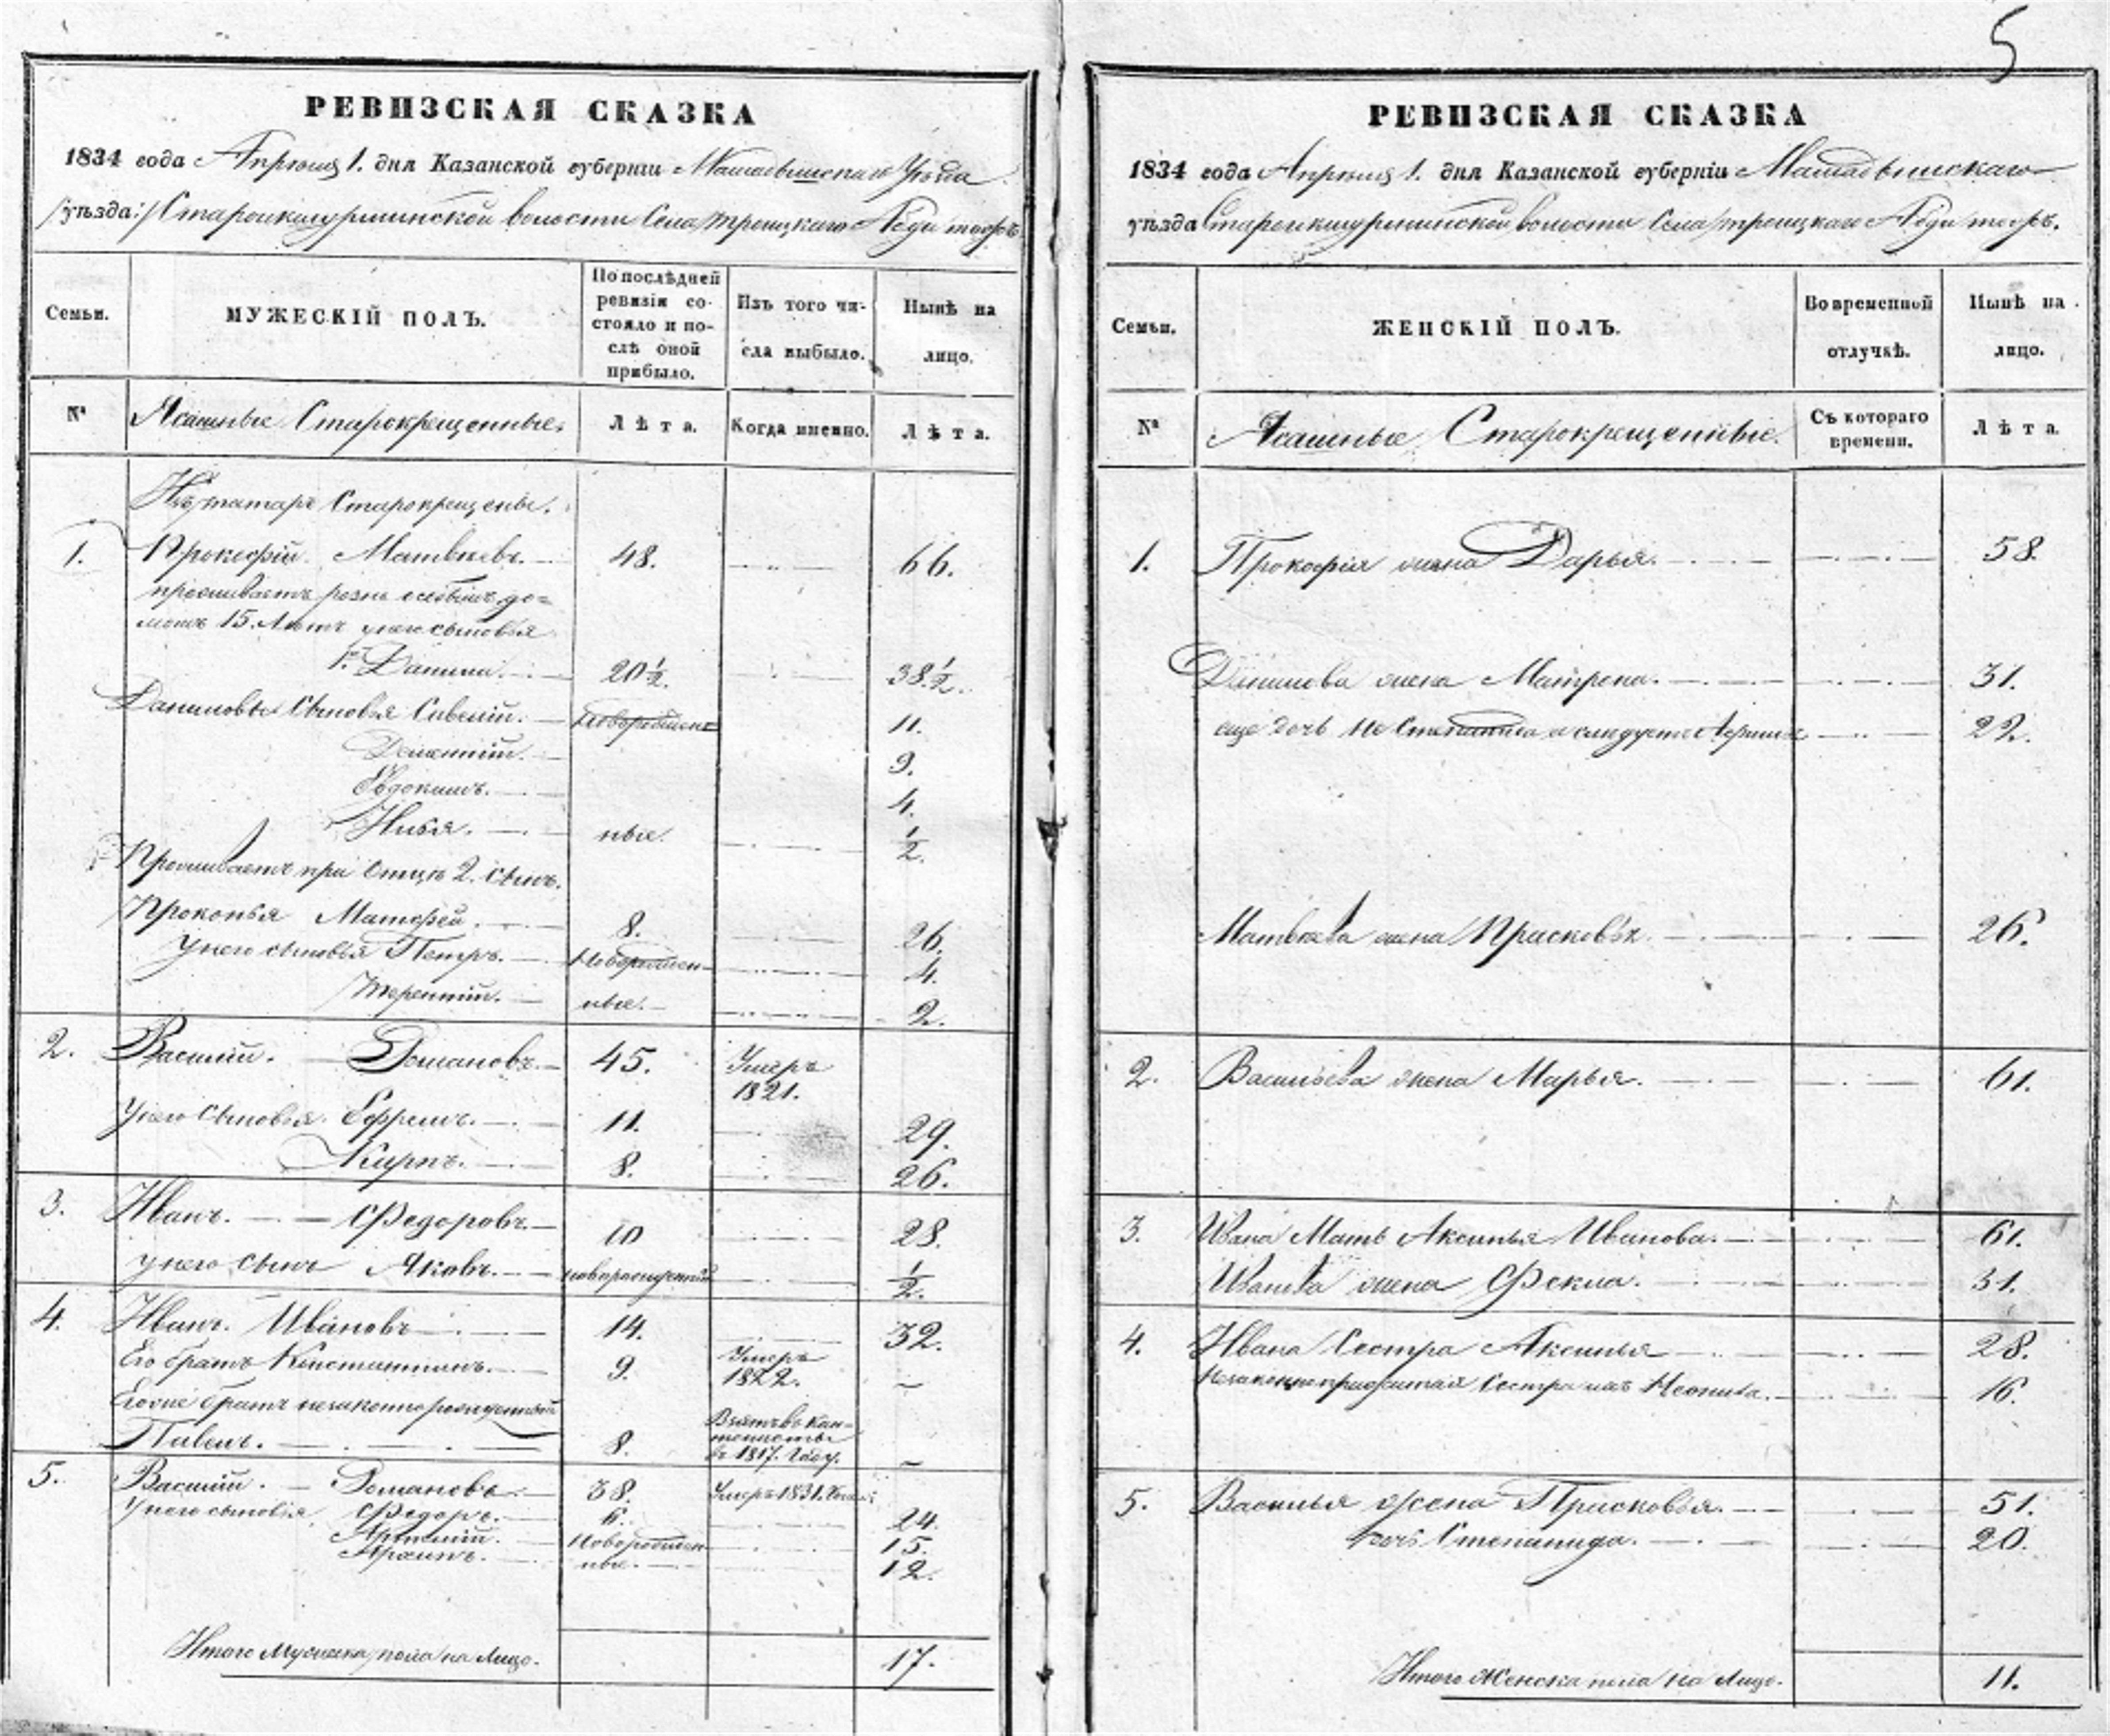 5
РЕВИЗСКАЯ СКАЗКА
1834 года Апреля 1. дня Казанской губерніи Мамадышскаго Уѣзда
/уѣзда:/ волости Села Троицкаго
Семьи.
МУЖЕСКІЙ ПОЛЪ.
По послѣдней
ревизіи со-
стояло и по-
слѣ оной
прибыло.
Изъ того чи-
сла выбыло.
Нынѣ на
лицо.
№
Ясашные Старокрещенные.
Лѣта.
Когда именно.
Лѣта.
Изъ татаръ Старокрещены.
1. Прокофій Матвѣевъ. 48. 66.
проживаетъ розно особымъ до=
момъ 15. Лѣтъ у него сыновья
1й Данила. 20½. 38.½.
Даниловы Сыновья Савелій. Новорожден 11.
Дементій. 9.
Евдокимъ. 4.
Илья. ные. ½.
Проживаетъ при Отцѣ 2. сынъ.
Прокопья Матфей. 8. 26.
У него сыновья Петръ. Новорожден- 4.
Терентій. ные. 2.
2. Василій. Романовъ. 45. Умеръ
1821.
У него Сыновья Ефремъ. 11. 29.
Карпъ. 8. 26.
3. Иванъ. Федоровъ. 10 28.
у него сынъ Яковъ. новорожденный ½.
4. Иванъ. Ивановъ 14. 32.
Его братъ Константинъ. 9. Умеръ
1822.
Его же братъ незаконнорожденный
Павелъ. 8. Взятъ въ кан=
тонисты
въ 1817. Году.
5. Василій. Романовъ. 38. Умеръ 1831.
У него сыновья Федоръ. 6. 24.
Артемій. Новорожден- 15.
Архипъ. ные. 12.
Итого Мужеска пола на Лицо. 17.
РЕВИЗСКАЯ СКАЗКА
1834 года Апреля 1. дня Казанской губерніи Мамадышскаго
уѣзда волости Села Троицкаго
Семьи.
ЖЕНСКІЙ ПОЛЪ.
Во временной
отлучкѣ.
Нынѣ на
лицо.
№
Ясашные Старокрещенные.
Съ котораго
времени.
Лѣта.
1. Прокофія жена Дарья. 58.
Данилова жена Матрена. 31.
еще дочь не Степанида а слѣдуетъ 22.
Матвѣева жена Прасковья. 26.
2. Васильева жена Марья. 61.
3. Ивана Мать Аксинья Иванова. 61.
Иванова жена Фекла. 31.
4. Ивана Сестра Аксинья 28.
Сестра ихъ 16.
5. Василья жена Прасковья. 51.
дочь Степанида. 20.
Итого Женска пола на Лицо. 11.